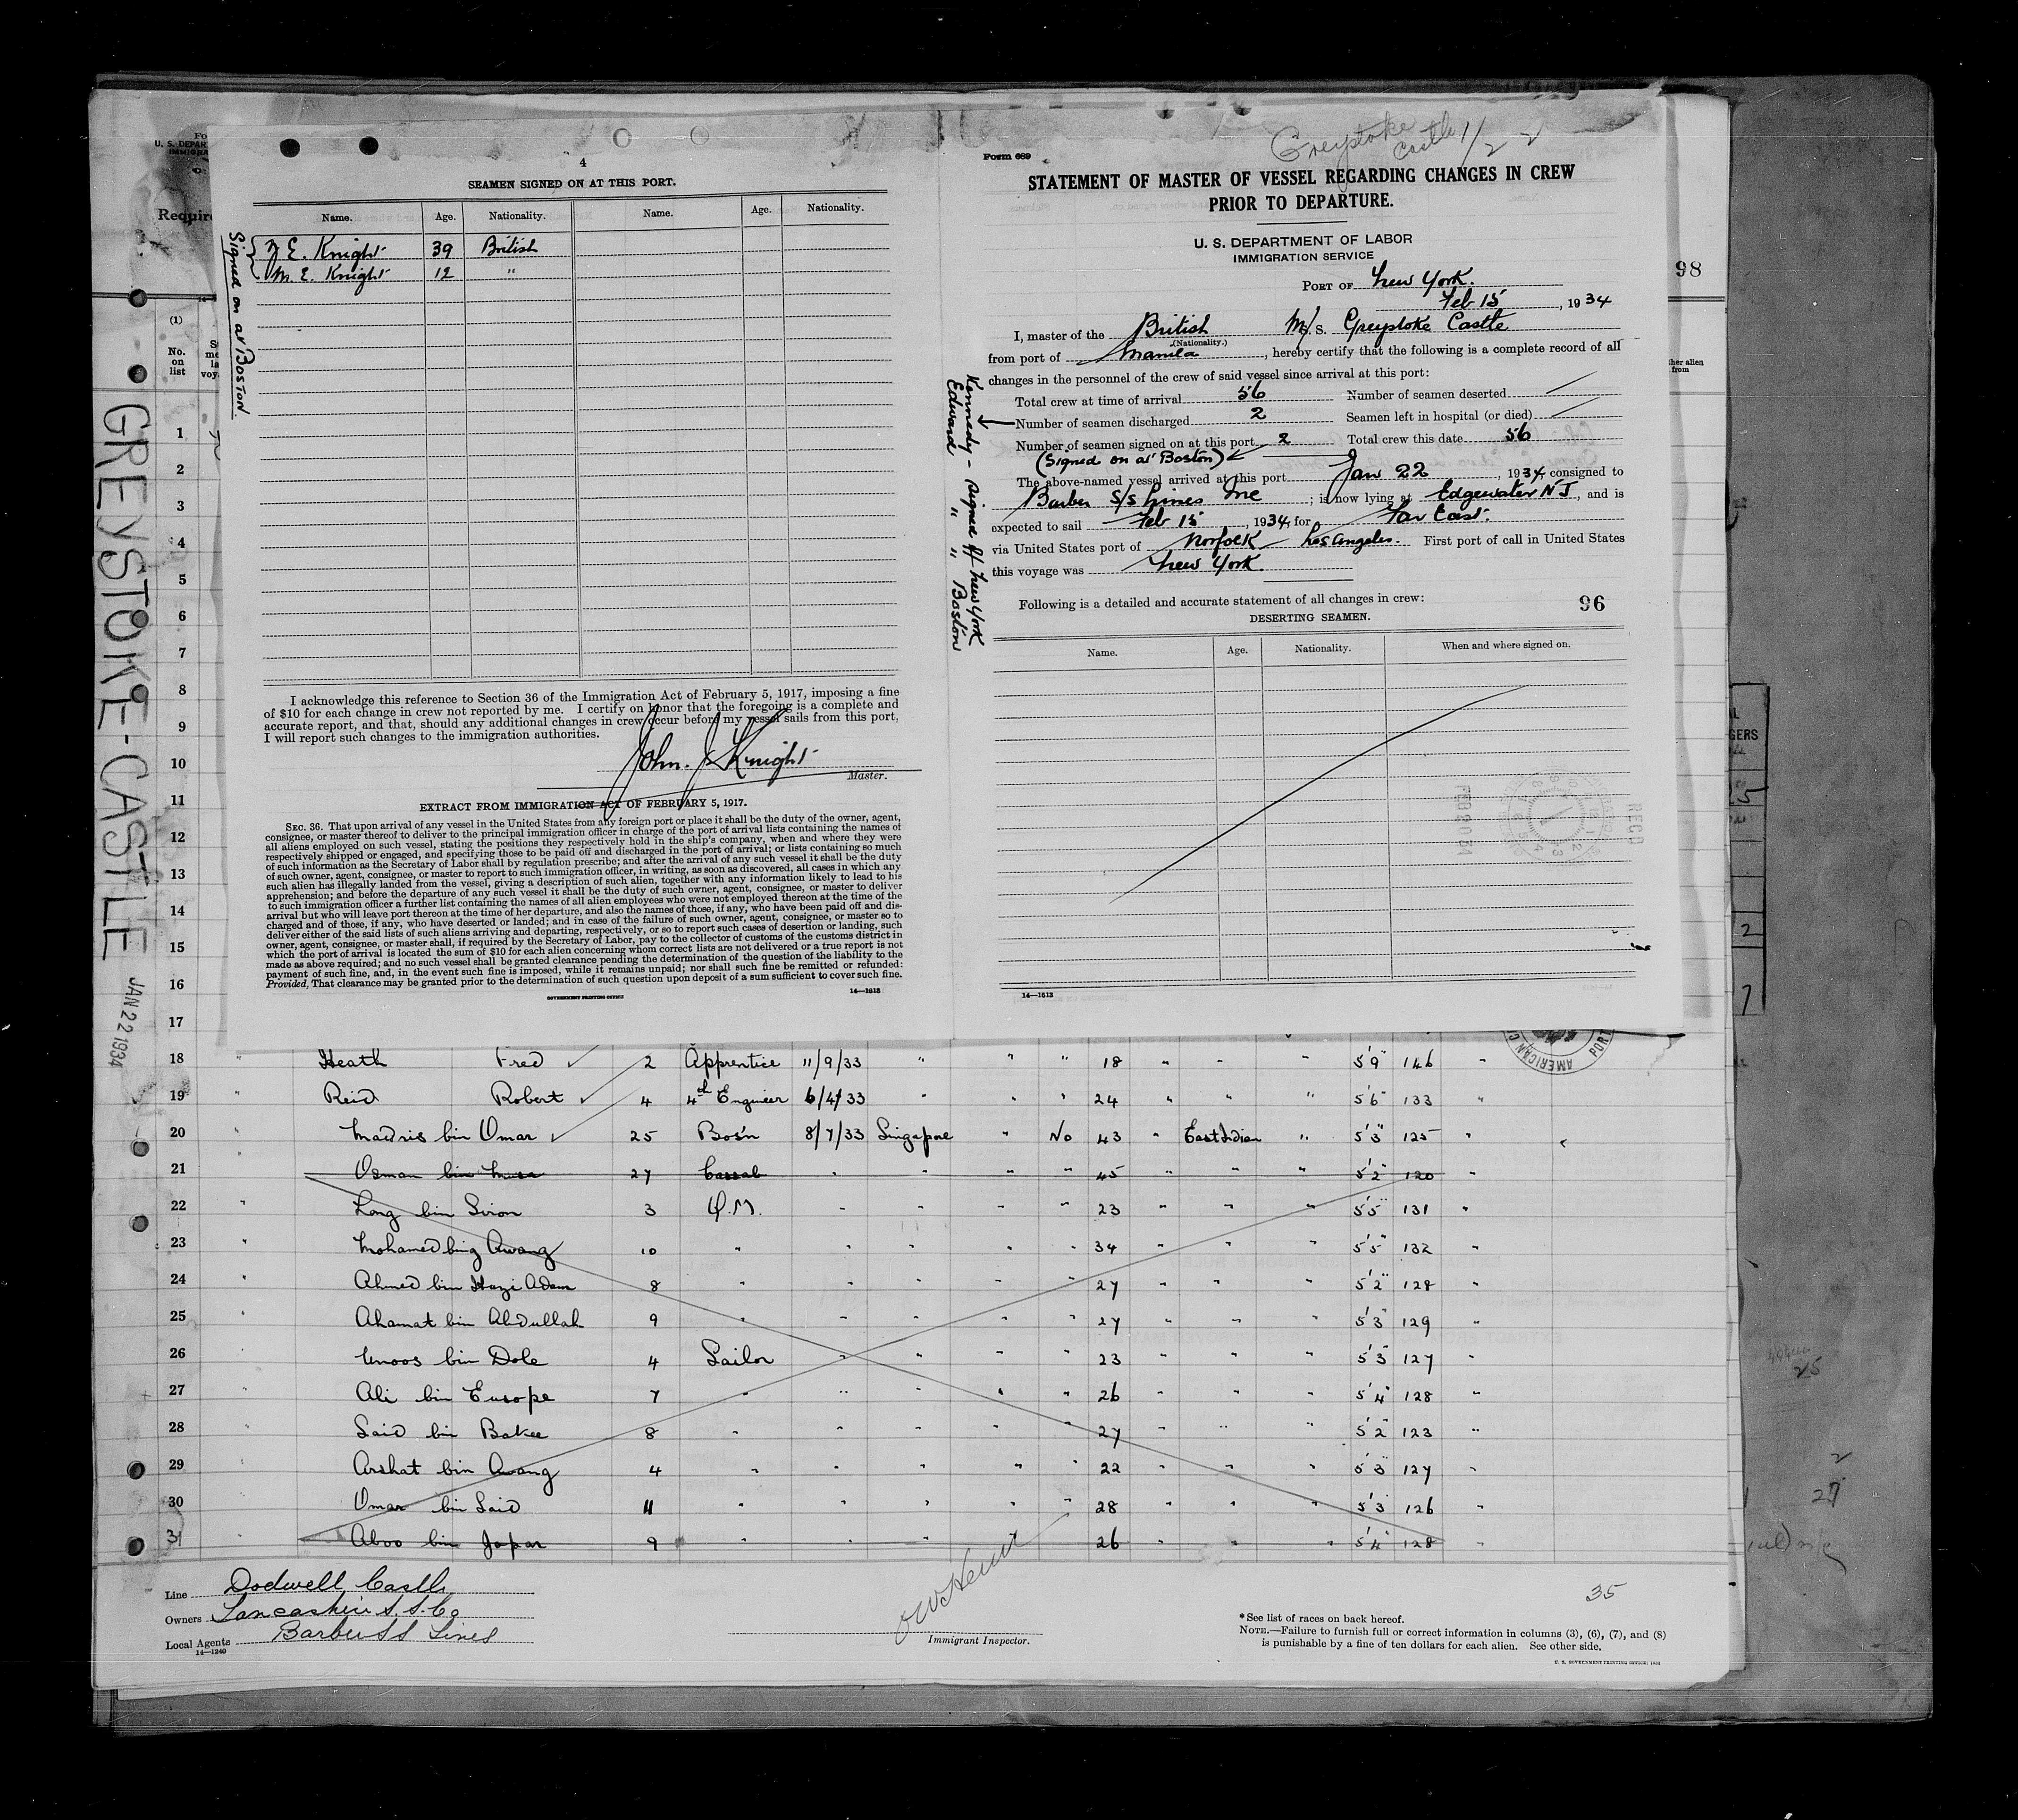 4
SEAMEN SIGNED ON AT THIS PORT.
Name. Age. Nationality. Name. Age. Nationality.
E. Knight 39 British
M. E. Knight 12 "
Signed on at Boston.
I acknowledge this reference to Section 36 of the Immigration Act of February 5, 1917, imposing a fine
of $10 for each change in crew not reported by me. I certify on honor that the foregoing is a complete and
accurate report, and that, should any additional changes in crew occur before my vessel sails from this port,
I will report such changes to the immigration authorities.
John. J Knight
Master.
EXTRACT FROM IMMIGRATION ACT OF FEBRUARY 5, 1917.
SEC. 36. That upon arrival of any vessel in the United States from any foreign port or place it shall be the duty of the owner, agent,
consignee, or master thereof to deliver to the principal immigration officer in charge of the port of arrival lists containing the names of
all aliens employed on such vessel, stating the positions they respectively hold in the ship's company, when and where they were
respectively shipped or engaged, and specifying those to be paid off and discharged in the port of arrival; or lists containing so much
of such information as the Secretary of Labor shall by regulation prescribe; and after the arrival of any such vessel it shall be the duty
of such owner, agent, consignee, or master to report to such immigration officer, in writing, as soon as discovered, all cases in which any
such alien has illegally landed from the vessel, giving a description of such alien, together with any information likely to lead to his
apprehension; and before the departure of any such vessel it shall be the duty of such owner, agent, consignee, or master to deliver
to such immigration officer a further list containing the names of all alien employees who were not employed thereon at the time of the
arrival but who will leave port thereon at the time of her departure, and also the names of those, if any, who have been paid off and dis-
charged and of those, if any, who have deserted or landed; and in case of the failure of such owner, agent, consignee, or master so to
deliver either of the said lists of such aliens arriving and departing, respectively, or so to report such cases of desertion or landing, such
owner, agent, consignee, or master shall, if required by the Secretary of Labor, pay to the collector of customs of the customs district in
which the port of arrival is located the sum of $10 for each alien concerning whom correct lists are not delivered or a true report is not
made as above required; and no such vessel shall be granted clearance pending the determination of the question of the liability to the
payment of such fine, and, in the event such fine is imposed, while it remains unpaid; nor shall such fine be remitted or refunded:
Provided, That clearance may be granted prior to the determination of such question upon deposit of a sum sufficient to cover such fine.
GOVERNMENT PRINTING OFFICE 14—1613
Greystoke Castle 1/22
Form 689
STATEMENT OF MASTER OF VESSEL REGARDING CHANGES IN CREW
PRIOR TO DEPARTURE.
U. S. DEPARTMENT OF LABOR
IMMIGRATION SERVICE
PORT OF New York.
Feb 15, 1934
I, master of the British M/S. Greystoke Castle
(Nationality.)
from port of Manila, hereby certify that the following is a complete record of all
changes in the personnel of the crew of said vessel since arrival at this port:
Total crew at time of arrival 56 Number of seamen deserted
Number of seamen discharged 2 Seamen left in hospital (or died)
Number of seamen signed on at this port 2 Total crew this date 56
(Signed on at Boston)
The above-named vessel arrived at this port Jan 22, 1934, consigned to
Barber S/S Lines Inc; is now lying at Edgewater NJ, and is
expected to sail Feb 15, 1934, for Far East.
via United States port of Norfolk Los Angeles. First port of call in United States
this voyage was New York.
Following is a detailed and accurate statement of all changes in crew: 96
DESERTING SEAMEN.
Name. Age. Nationality. When and where signed on.
14—1613
Kennedy - signed off New York
Edward " " Boston
REC'D
98
GREYSTOKE-CASTLE JAN 22 1934
U. S. DEPAR
IMMIGRA
Require
(1)
No. on list
1
2
3
4
5
6
7
8
9
10
11
12
13
14
15
16
17
18 " Heath Fred 2 Apprentice 11/9/33 " " " 18 " " " 5'9" 146 "
19 " Reid Robert 4 4th Engineer 6/4/33 " " " 24 " " " 5'6" 133 "
20 Madris bin Omar 25 Bos'n 8/7/33 Singapore " No 43 " East Indian " 5'3" 125 "
21 Osman bin Musa 27 Cassab " " " " 45 " " " 5'2" 120 "
22 " Long bin Siron 3 Q.M. " " " " 23 " " " 5'5" 131 "
23 " Mohamed bing Awang 10 " " " " " 34 " " " 5'5" 132 "
24 " Ahmed bin Hazi Adam 8 " " " " " 27 " " " 5'2" 128 "
25 " Ahamat bin Abdullah 9 " " " " " 27 " " " 5'3" 129 "
26 " Unoos bin Dole 4 Sailor " " " " 23 " " " 5'3" 127 "
27 " Ali bin Europe 7 " " " " " 26 " " " 5'4" 128 "
28 " Said bin Bakee 8 " " " " " 27 " " " 5'2" 123 "
29 " Arshat bin Awang 4 " " " " " 22 " " " 5'3" 127 "
30 " Omar bin Said 11 " " " " " 28 " " " 5'3" 126 "
31 " Aboo bin Japar 9 " " " " " 26 " " " 5'4" 128 "
Line Dodwell Castle
Owners Lancashire S. S. Co
Local Agents Barber SS Lines
14—1240
Immigrant Inspector.
35
*See list of races on back hereof.
NOTE.—Failure to furnish full or correct information in columns (3), (6), (7), and (8)
is punishable by a fine of ten dollars for each alien. See other side.